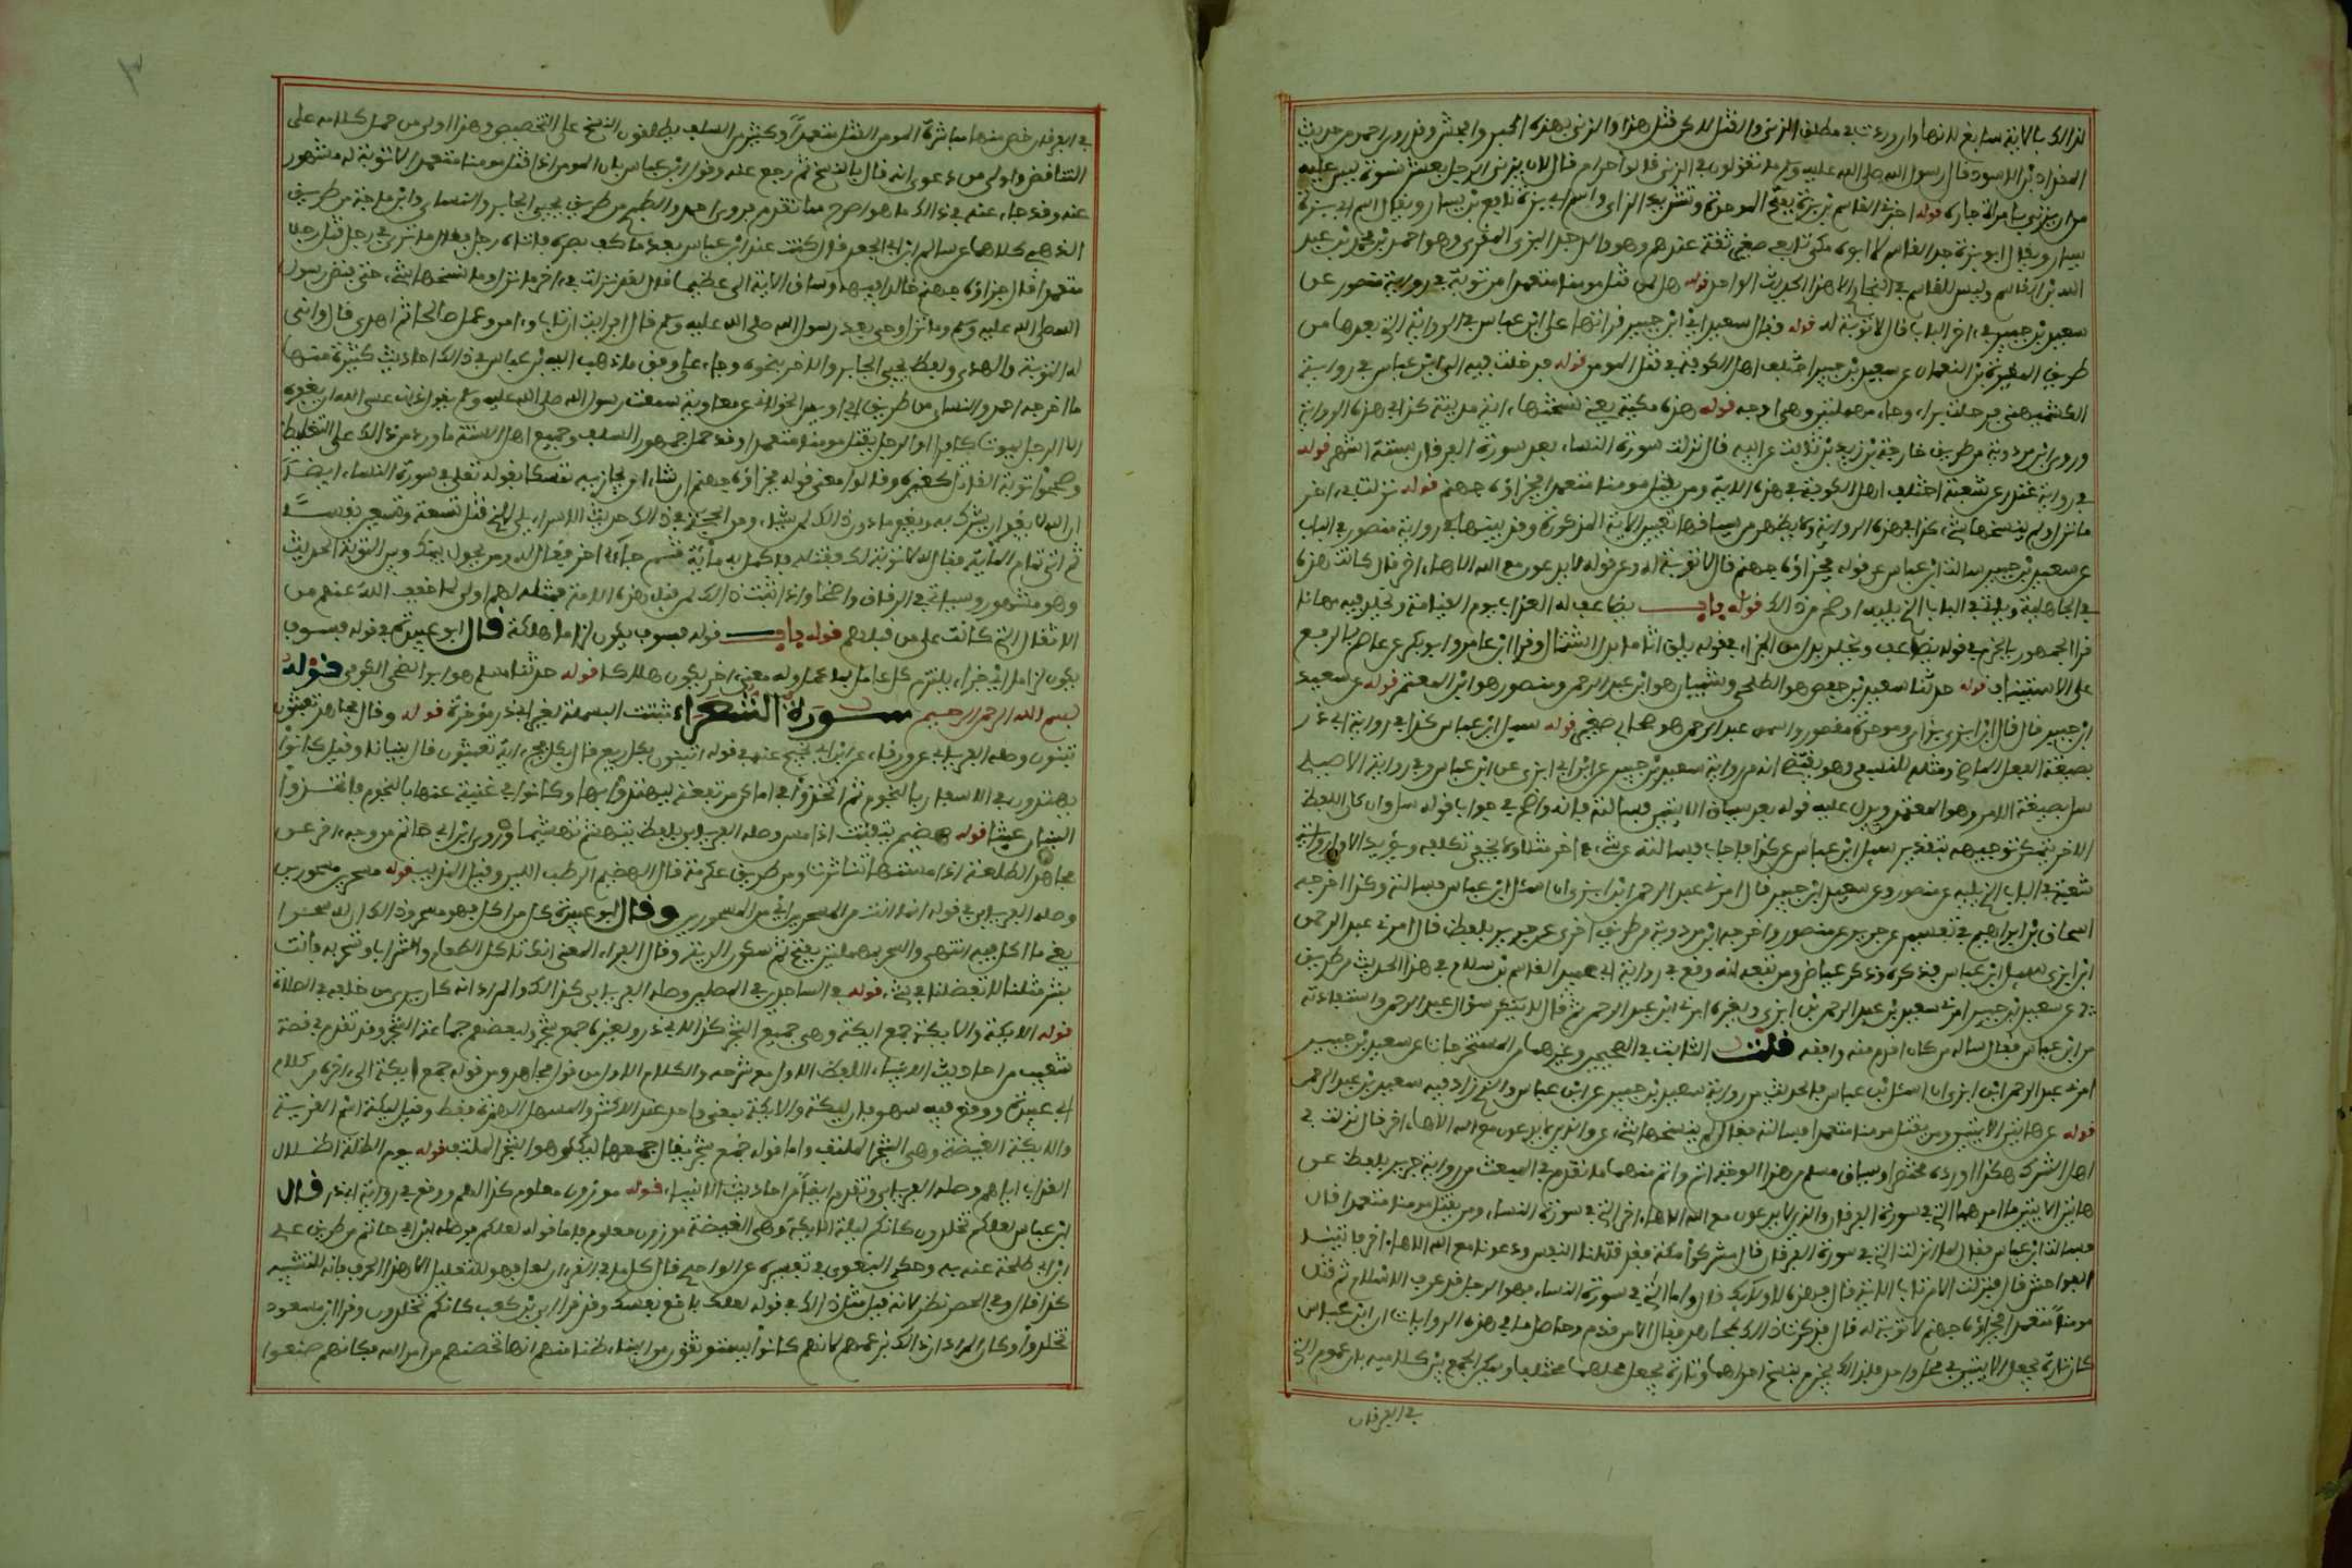 لذلك بالآية سائغ لأنها وإن وردت في مطلق الزنى والقتل لكن قتل هذا والزنى بهذه أكبر وأفحش وقد روى أحمد من حديث
المقداد بن الأسود قال رسول الله صلى الله عليه وسلم ما تقولون في الزنى قالوا حرام قال لأن يزني الرجل بعشر نسوة أيسر عليه
من أن يزني بامرأة جاره قوله أخبرني القاسم بن أبي بزة بفتح الموحدة وتشديد الزاي واسم أبي بزة نافع بن يسار ويقال اسم أبي بزة
يسار ويقال أبو بزة جد القاسم لا أبوه مكي تابعي صغير ثقة عندهم وهو والد جد البزي المقرئ وهو أحمد بن محمد بن عبد
الله بن القاسم وليس للقاسم في البخاري إلا هذا الحديث الواحد قوله هل لمن قتل مؤمنا متعمدا من توبة في رواية منصور عن
سعيد بن جبير في آخر الباب قال لا توبة له قوله فقال سعيد أي ابن جبير قرأتها على ابن عباس في الرواية التي بعدها من
طريق المغيرة بن النعمان عن سعيد بن جبير اختلف أهل الكوفة في قتل المؤمن قوله فدخلت فيه إلى ابن عباس في رواية
الكشميهني فرحلت براء وحاء مهملتين وهي أوجه قوله هذه مكية يعني نسختها آية مدينة كذا في هذه الرواية
وروى ابن مردويه من طريق خارجة بن زيد بن ثابت عن أبيه قال نزلت سورة النساء بعد سورة الفرقان بستة أشهر قوله
في رواية غندر عن شعبة اختلف أهل الكوفة في هذه الآية ومن يقتل مؤمنا متعمدا فجزاؤه جهنم قوله نزلت في آخر
ما نزل ولم ينسخها شيء كذا في هذه الرواية ولا يظهر من سياقها تعيين الآية المذكورة وقد بينها في رواية منصور في الباب
عن سعيد بن جبير سألت ابن عباس عن قوله فجزاؤه جهنم قال لا توبة له وعن قوله لا يدعون مع الله إلاها آخر قال كانت هذه
في الجاهلية ويأتي في الباب الذي يليه أوضح من ذلك قوله باب يضاعف له العذاب يوم القيامة ويخلد فيه مهانا
قرأ الجمهور بالجزم في قوله يضاعف ويخلد بدلا من الجزاء في قوله يلق أثاما بدل اشتمال وقرأ ابن عامر وأبو بكر عن عاصم بالرفع
على الاستئناف قوله حدثنا سعيد بن حفص هو الطلحي وشيبان هو ابن عبد الرحمن ومنصور هو ابن المعتمر قوله عن سعيد
ابن جبير قال قال ابن أبزى بزاي وموحدة مقصور واسمه عبد الرحمن هو صحابي صغير قوله سئل ابن عباس كذا في رواية أبي ذر
بصيغة الفعل الماضي ومثله للنسفي وهو يقتضي أنه من رواية سعيد بن جبير عن ابن أبزى عن ابن عباس وفي رواية الأصيلي
سل بصيغة الأمر وهو المعتمد ويدل عليه قوله بعد سياق الآيتين فسألته فإنه واضح في جواب قوله سل وإن كان اللفظ
الآخر يمكن توجيهه بتقدير سئل ابن عباس عن كذا فأجاب فسألته عن شيء آخر مثلا ولا يخفى تكلفه ويؤيد الأول رواية
شعبة في الباب الذي يليه عن منصور وعن سعيد بن جبير قال أمرني عبد الرحمن ابن أبزى أن أسأل ابن عباس فسألته وكذا أخرجه
إسحاق بن إبراهيم في تفسيره عن جرير عن منصور وأخرجه ابن مردويه من طريق أخرى عن جرير بلفظ قال أمرني عبد الرحمن
ابن أبزى سل ابن عباس فذكره وذكر عياض ومن تبعه أنه وقع في رواية أبي عبيد القاسم بن سلام في هذا الحديث من طريق
عن سعيد بن جبير أمرني سعيد بن عبد الرحمن بن أبزى
من ابن عباس فقال سأله من كان أقدم منه وأفقه قلت الثابت في الصحيحين وغيرهما من المستخرجات عن سعيد بن جبير
أمرني عبد الرحمن ابن أبزى أن أسأل ابن عباس فالحديث من رواية سعيد بن جبير عن ابن عباس والذي زاد فيه سعيد بن عبد الرحمن
قوله عن هاتين الآيتين ومن يقتل مؤمنا متعمدا فسألته فقال لم ينسخها شيء وعن والذين لا يدعون مع الله إلاها آخر قال نزلت في
أهل الشرك هكذا أورده مختصرا وسياق مسلم من هذا الوجه أتم وأتم منهما ما تقدم في المبعث من رواية جرير بلفظ عن
هاتين الآيتين ما أمرهما التي في سورة الفرقان والذين لا يدعون مع الله إلاها آخر والتي في سورة النساء ومن يقتل مؤمنا متعمدا قال
فسألت ابن عباس فقال لما أنزلت التي في سورة الفرقان قال مشركوا مكة فقد قتلنا النفس ودعونا مع الله إلاها آخر وأتينا
الفواحش قال فنزلت إلا من تاب الآية قال فهذه لأولائك قال وأما التي في سورة النساء فهو الرجل قد عرف الإسلام ثم قتل
مومنا متعمدا فجزاؤه جهنم لا توبة له قال فذكرت ذلك لمجاهد فقال إلا من ندم وحاصل ما في هذه الروايات أن ابن عباس
كان تارة يجعل الآيتين في محل واحد فلذلك يجزم بنسخ إحداهما وتارة يجعل محلهما مختلفا ويمكن الجمع بين كلاميه بأن عموم التي
في الفرقان
في الفرقان خص منها مباشرة المومن القتل متعمدا وكثير من السلف يطلقون النسخ على التخصيص وهذا أولى من حمل كلامه على
التناقض وأولى من دعوى أنه قال بالنسخ ثم رجع عنه وقول ابن عباس بأن المومن إذا قتل مومنا متعمدا لا توبة له مشهور
عنه وقد جاء عنه في ذلك ما هو أصرح مما تقدم فروى أحمد والطبري من طريق يحيى الجابر والنسائي وابن ماجة من طريق
الذهبي كلاهما عن سالم ابن أبي الجعد قال كنت عند ابن عباس بعدما كف بصره فأتاه رجل فقال ما ترى في رجل قتل رجلا
متعمدا قال جزاؤه جهنم خالدا فيها وساق الآية إلى عظيما قال لقد نزلت في آخر ما نزل وما نسخها شيء حتى قبض رسول
الله صلى الله عليه وسلم وما نزل وحي بعد رسول الله صلى الله عليه وسلم قال أفرأيت إن تاب وآمن وعمل صالحا ثم اهتدى قال وأنى
له التوبة والهدى ولفظ يحيى الجابر والآخر نحوه وجاء على وفق ما ذهب إليه ابن عباس في ذلك أحاديث كثيرة منها
ما أخرجه أحمد والنسائي من طريق أبي إدريس الخولاني عن معاوية سمعت رسول الله صلى الله عليه وسلم يقول كل ذنب عسى الله أن يغفره
إلا الرجل يموت كافرا أو الرجل يقتل مومنا متعمدا وقد حمل جمهور السلف وجميع أهل السنة ما ورد من ذلك على التغليظ
وصححوا توبة القاتل كغيره وقالوا معنى قوله فجزاؤه جهنم إن شاء أن يجازيه تمسكا بقوله تعلى في سورة النساء أيضا
إن الله لا يغفر أن يشرك به ويغفر ما دون ذلك لمن يشاء ومن الحجة في ذلك حديث الإسراءيلي الذي قتل تسعة وتسعين نفسا
ثم أتى تمام المائة فقال له لا توبة لك فقتله فأكمل به مائة ثم جاء آخر فقال له ومن يحول بينك وبين التوبة الحديث
وهو مشهور وسيأتي في الرقاق واضحا وإذا ثبت ذلك لمن قبل هذه الأمة فمثله لهم أولى لما خفف الله عنهم من
الأثقال التي كانت على من قبلهم قوله باب قوله فسوف يكون لزاما هلكة قال أبو عبيدة في قوله فسوف
يكون لزاما أي جزاء يلزم كل عامل بما عمل وله معنى آخر يكون هلاكا قوله حدثنا مسلم هو أبو الضحى الكوفي قوله
بسم الله الرحمن الرحيم سورة الشعراء ثبتت البسملة لغير أبي ذر مؤخرة قوله وقال مجاهد تعبثون
تبنون وصله الفريابي عن ورقاء عن ابن أبي نجيح عنه في قوله أتبنون بكل ريع قال بكل فج آية تعبثون قال بنيانا وقيل كانوا
يهتدون في الأسفار بالنجوم ثم اتخذوا في أماكن مرتفعة ليهتدوا بها وكانوا في غنية عنها بالنجوم فاتخذوا
البنيان عبثا قوله هضيم يتفتت إذا مس وصله الفريابي بلفظ يتهشم تهشيما وروى ابن أبي حاتم من وجه آخر عن
مجاهد الطلعة إذا مسستها تناثرت ومن طريق عكرمة قال الهضيم الرطب اللين وقيل المذنب قوله مسحرين مسحورين
وصله الفريابي في قوله إنما أنت من المسحرين أي من المسحورين وقال أبو عبيدة كل من أكل فهو مسحر وذلك أن له سحرا
يفري ما أكل فيه انتهى والسحر بمهملتين بفتح ثم سكون الرية وقال الفراء المعنى إنك تأكل الطعام والشراب وتسحر به فأنت
بشر مثلنا لا تفضلنا في شيء قوله في الساجدين المصلين وصله الفريابي كذلك والمراد أنه كان يرى من خلفه في الصلاة
قوله الليكة والأيكة جمع أيكة وهي جميع الشجر كذا لأبي ذر ولغيره جمع شجر ولبعضهم جماعة الشجر وقد تقدم في قصة
شعيب من أحاديث الأنبياء اللفظ الأول مع شرحه والكلام الأول من قول مجاهد ومن قوله جمع أيكة إلى آخره من كلام
أبي عبيدة ووقع فيه سهو فإن ليكة والأيكة بمعنى واحد عند الأكثر والمسهل الهمزة فقط وقيل ليكة اسم القرية
والأيكة الغيضة وهي الشجر الملتف وأما قوله جمع شجر يقال جمعها ليك وهو الشجر الملتف قوله يوم الظلة إظلال
العذاب إياهم وصله الفريابي وتقدم أيضا من أحاديث الأنبياء قوله موزون معلوم كذا لهم ووقع في رواية أبي ذر قال
ابن عباس لعلكم تخلدون كأنكم ليكة الأيكة وهي الغيضة موزون معلوم فأما قوله لعلكم فوصله ابن أبي حاتم من طريق علي
ابن أبي طلحة عنه به وحكى البغوي في تفسيره عن الواحدي قال كل ما في القرآن لعل فهو للتعليل إلا هذا الحرف فإنه للتشبيه
كذا قال وفي الحصر نظر لأنه قيل مثل ذلك في قوله لعلك باخع نفسك وقد قرأ أبي بن كعب كأنكم تخلدون وقرأ ابن مسعود
تخلدوا وكان المراد أن ذلك بزعمهم لأنهم كانوا يستوثقون من البناء ظنا منهم أنها تحصنهم من أمر الله فكأنهم صنعوا